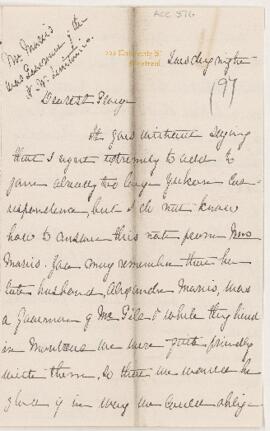 ACC 576
Mr. Morris
was Governor of the
N. W. Territories.
Montreal
Tuesday night
197
Dearest George
It goes without saying
that I regret extremely to add to
your already too large Yukon Cor-
respondence but I do not know
how to answer this note from Mrs
Morris. You may remember that her
late husband, Alexander Morris, was
a Governor of & while they lived
in Montreal we were quite friendly
with them, so that we would be
glad if in any we could oblige